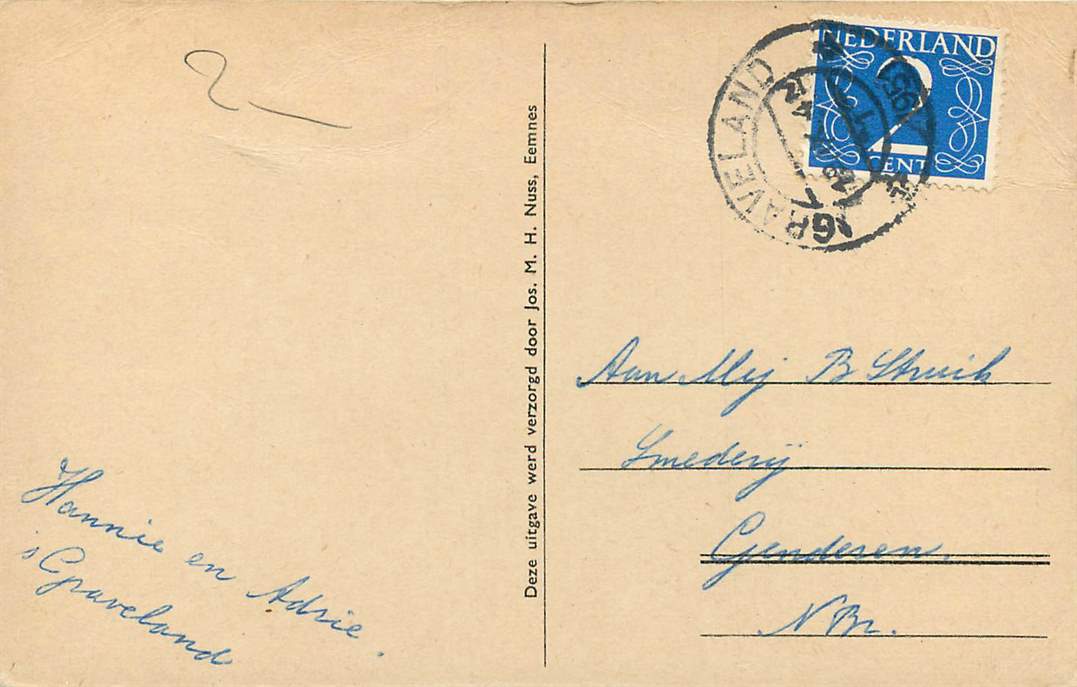 2
NEDERLAND
2
CENT
'S GRAVELAND
Deze uitgave werd verzorgd door Jos. M. H. Nuss, Eemnes
Aan Mej B Struik
Smederij
Genderen.
N Br.
Hannie en Adrie.
's Graveland